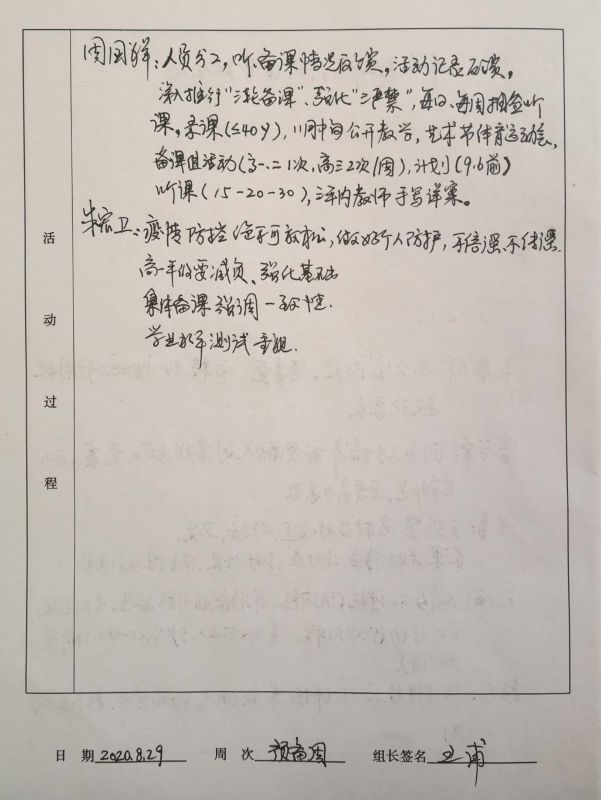 周国祥：人员分工，听、备课情况反馈，活动记录反馈。
深入推行“三轮备课”、强化“三严禁”，每日、每周抽查听
课，录课(≤40岁)，11月中旬公开教学，艺术节体育运动会，
备课组活动(高一、二1次，高三2次/周)，计划(9.6前)
听课(15-20-30)，三年内教师手写详案。
朱宏卫：疫情防控绝不可放松，做好个人防护，不信谣、不传谣.
高一年级要减负、强化基础
集体备课强调一致性.
学业水平测试重视.
活
动
过
程
日 期 2020.8.29 周 次 预备周 组长签名 王甫